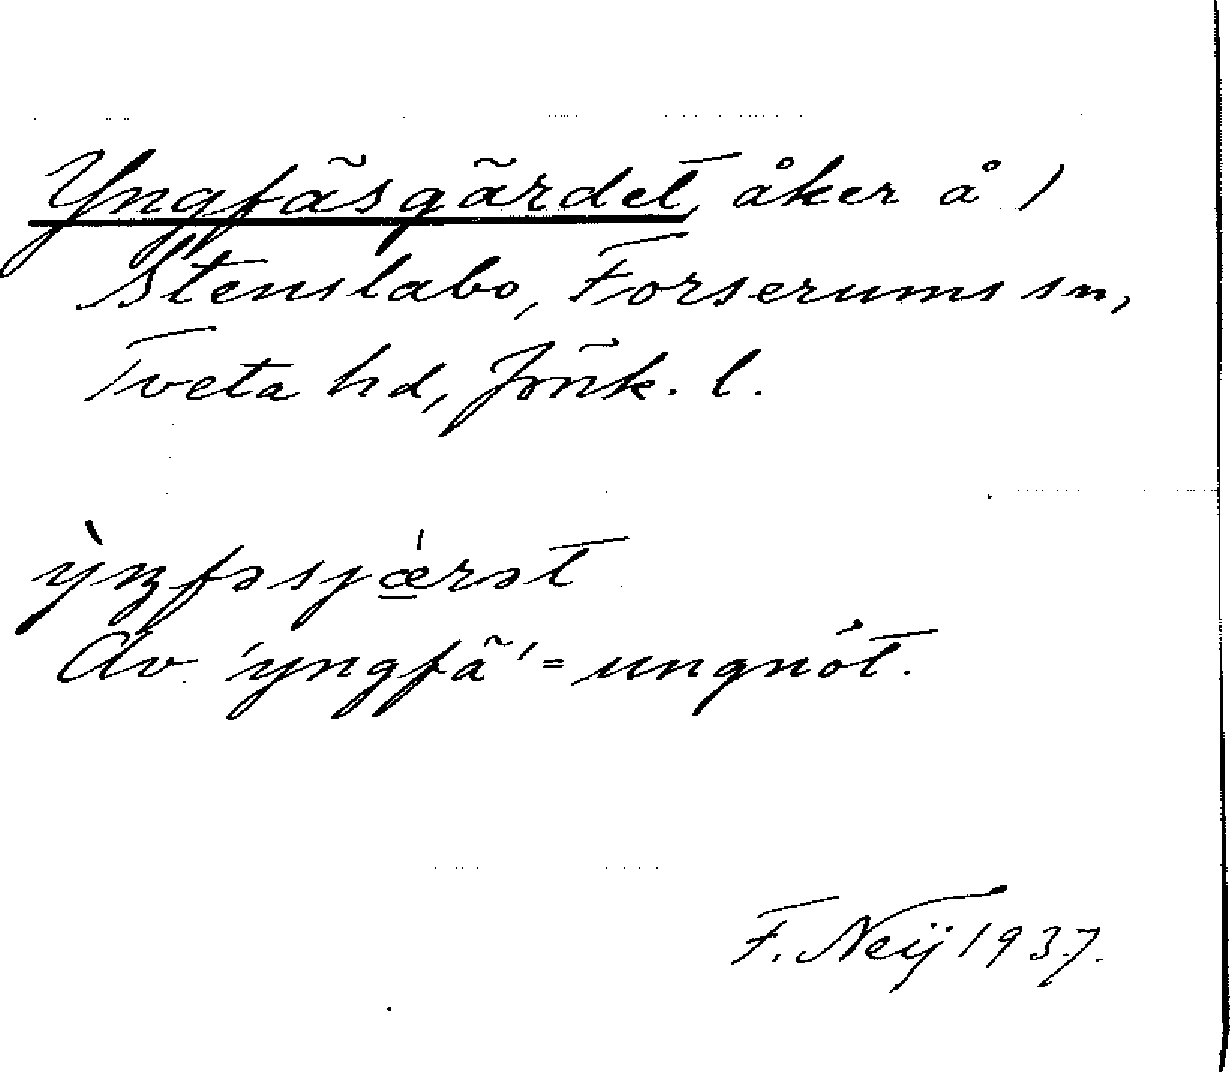 Yngfäsgärdet, åker å 1
Stenslabo, Forserums sn,
Tveta hd, Jönk. l.
ỳŋfəsjǽrət
Av 'yngfä' = ungnöt.
F. Neij 1937.